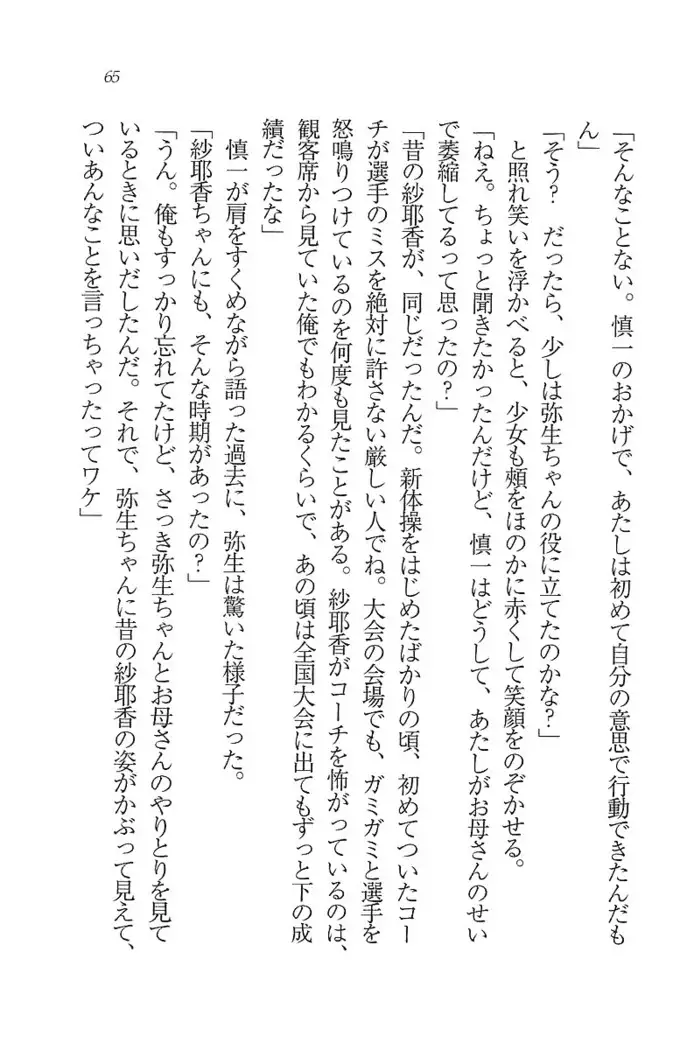 65
「そんなことない。慎一のおかげで、あたしは初めて自分の意思で行動できたんだも
ん」
「そう？　だったら、少しは弥生ちゃんの役に立てたのかな？」
と照れ笑いを浮かべると、少女も頬をほのかに赤くして笑顔をのぞかせる。
「ねえ。ちょっと聞きたかったんだけど、慎一はどうして、あたしがお母さんのせい
で萎縮してるって思ったの？」
「昔の紗耶香が、同じだったんだ。新体操をはじめたばかりの頃、初めてついたコー
チが選手のミスを絶対に許さない厳しい人でね。大会の会場でも、ガミガミと選手を
怒鳴りつけているのを何度も見たことがある。紗耶香がコーチを怖がっているのは、
観客席から見ていた俺でもわかるくらいで、あの頃は全国大会に出てもずっと下の成
績だったな」
慎一が肩をすくめながら語った過去に、弥生は驚いた様子だった。
「紗耶香ちゃんにも、そんな時期があったの？」
「うん。俺もすっかり忘れてたけど、さっき弥生ちゃんとお母さんのやりとりを見て
いるときに思いだしたんだ。それで、弥生ちゃんに昔の紗耶香の姿がかぶって見えて、
ついあんなことを言っちゃったってワケ」